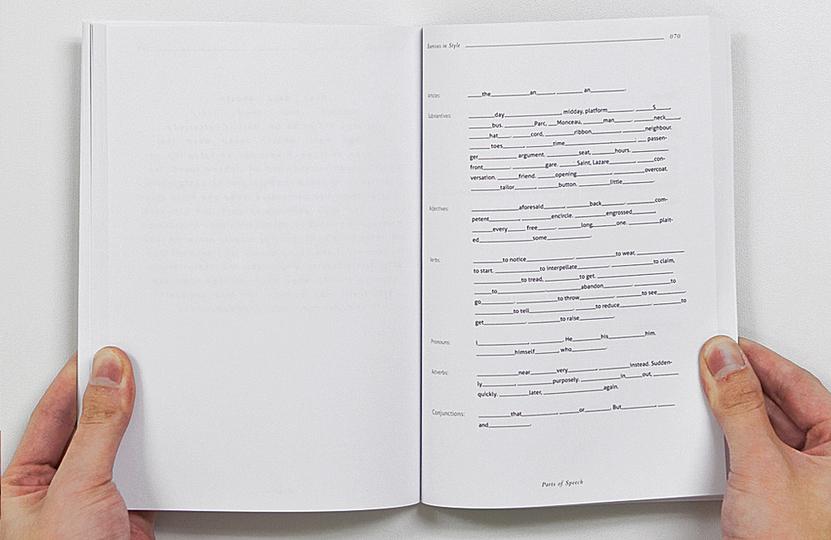 in Style 070
the an an
day midday, platform S
bus. Parc, Monceau, man neck
hat cord, ribbon neighbour.
toes time passen-
ger argument. seat, hours.
front gare. Saint, Lazare con-
versation. friend. opening overcoat.
tailor button. little
Adjectives: aforesaid back com-
petent encircle. engrossed
every free long, one. plait-
ed some
Verbs: to notice to wear,
to start. to interpellate to claim,
to tread, to get.
to abandon
go to throw to see
to tell to reduce to
get to raise
Pronouns: I He his him.
himself who
Adverbs: near very instead. Sudden-
ly purposely. in out,
quickly. later, again.
Conjunctions: that or But
and
Parts of Speech